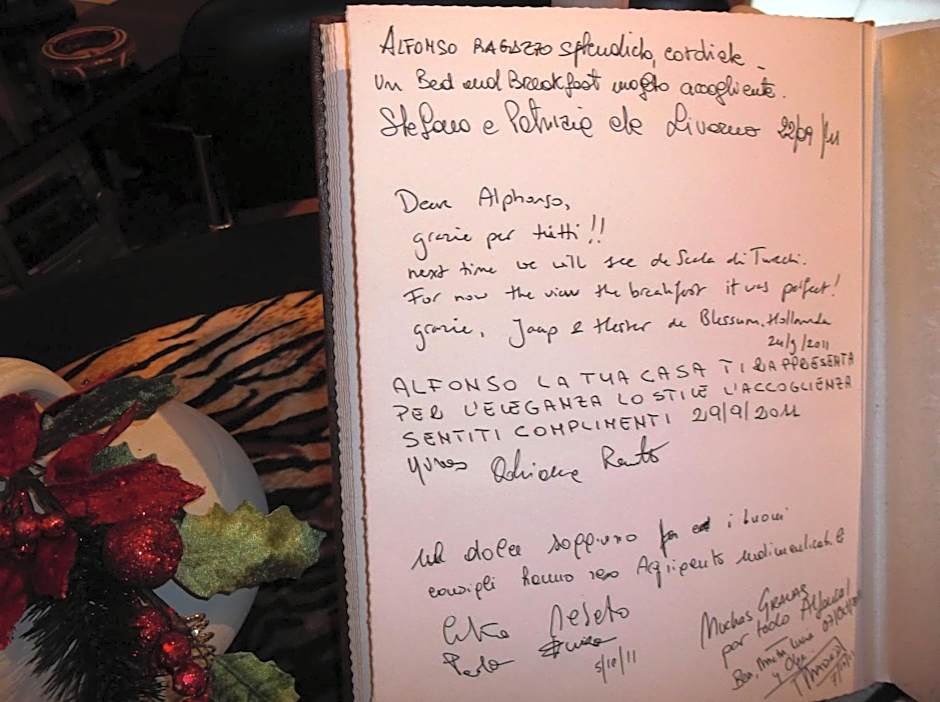 ALFONSO RAGAZZO splendido, cordiale -
Un Bed and Breakfast molto accogliente.
Stefano e Patrizia de Livorno 22/09/11
Dear Alphonso,
grazie per tutti!!
next time we will see de Scala di Turchi.
For now the view the breakfast it was perfect!
grazie, Jaap & Hester de Blessum, Hollanda
24/9/2011
ALFONSO LA TUA CASA TI RAPPRESENTA
PER L'ELEGANZA LO STILE L'ACCOGLIENZA
SENTITI COMPLIMENTI 29/9/2011
Adriana Renato
Un dolce soggiorno i buoni
consigli hanno reso Agrigento indimenticabile
Paolo
5/10/11
Muchas GRACIAS
por todo Alfonso!
Bea, Luisa
y Olga